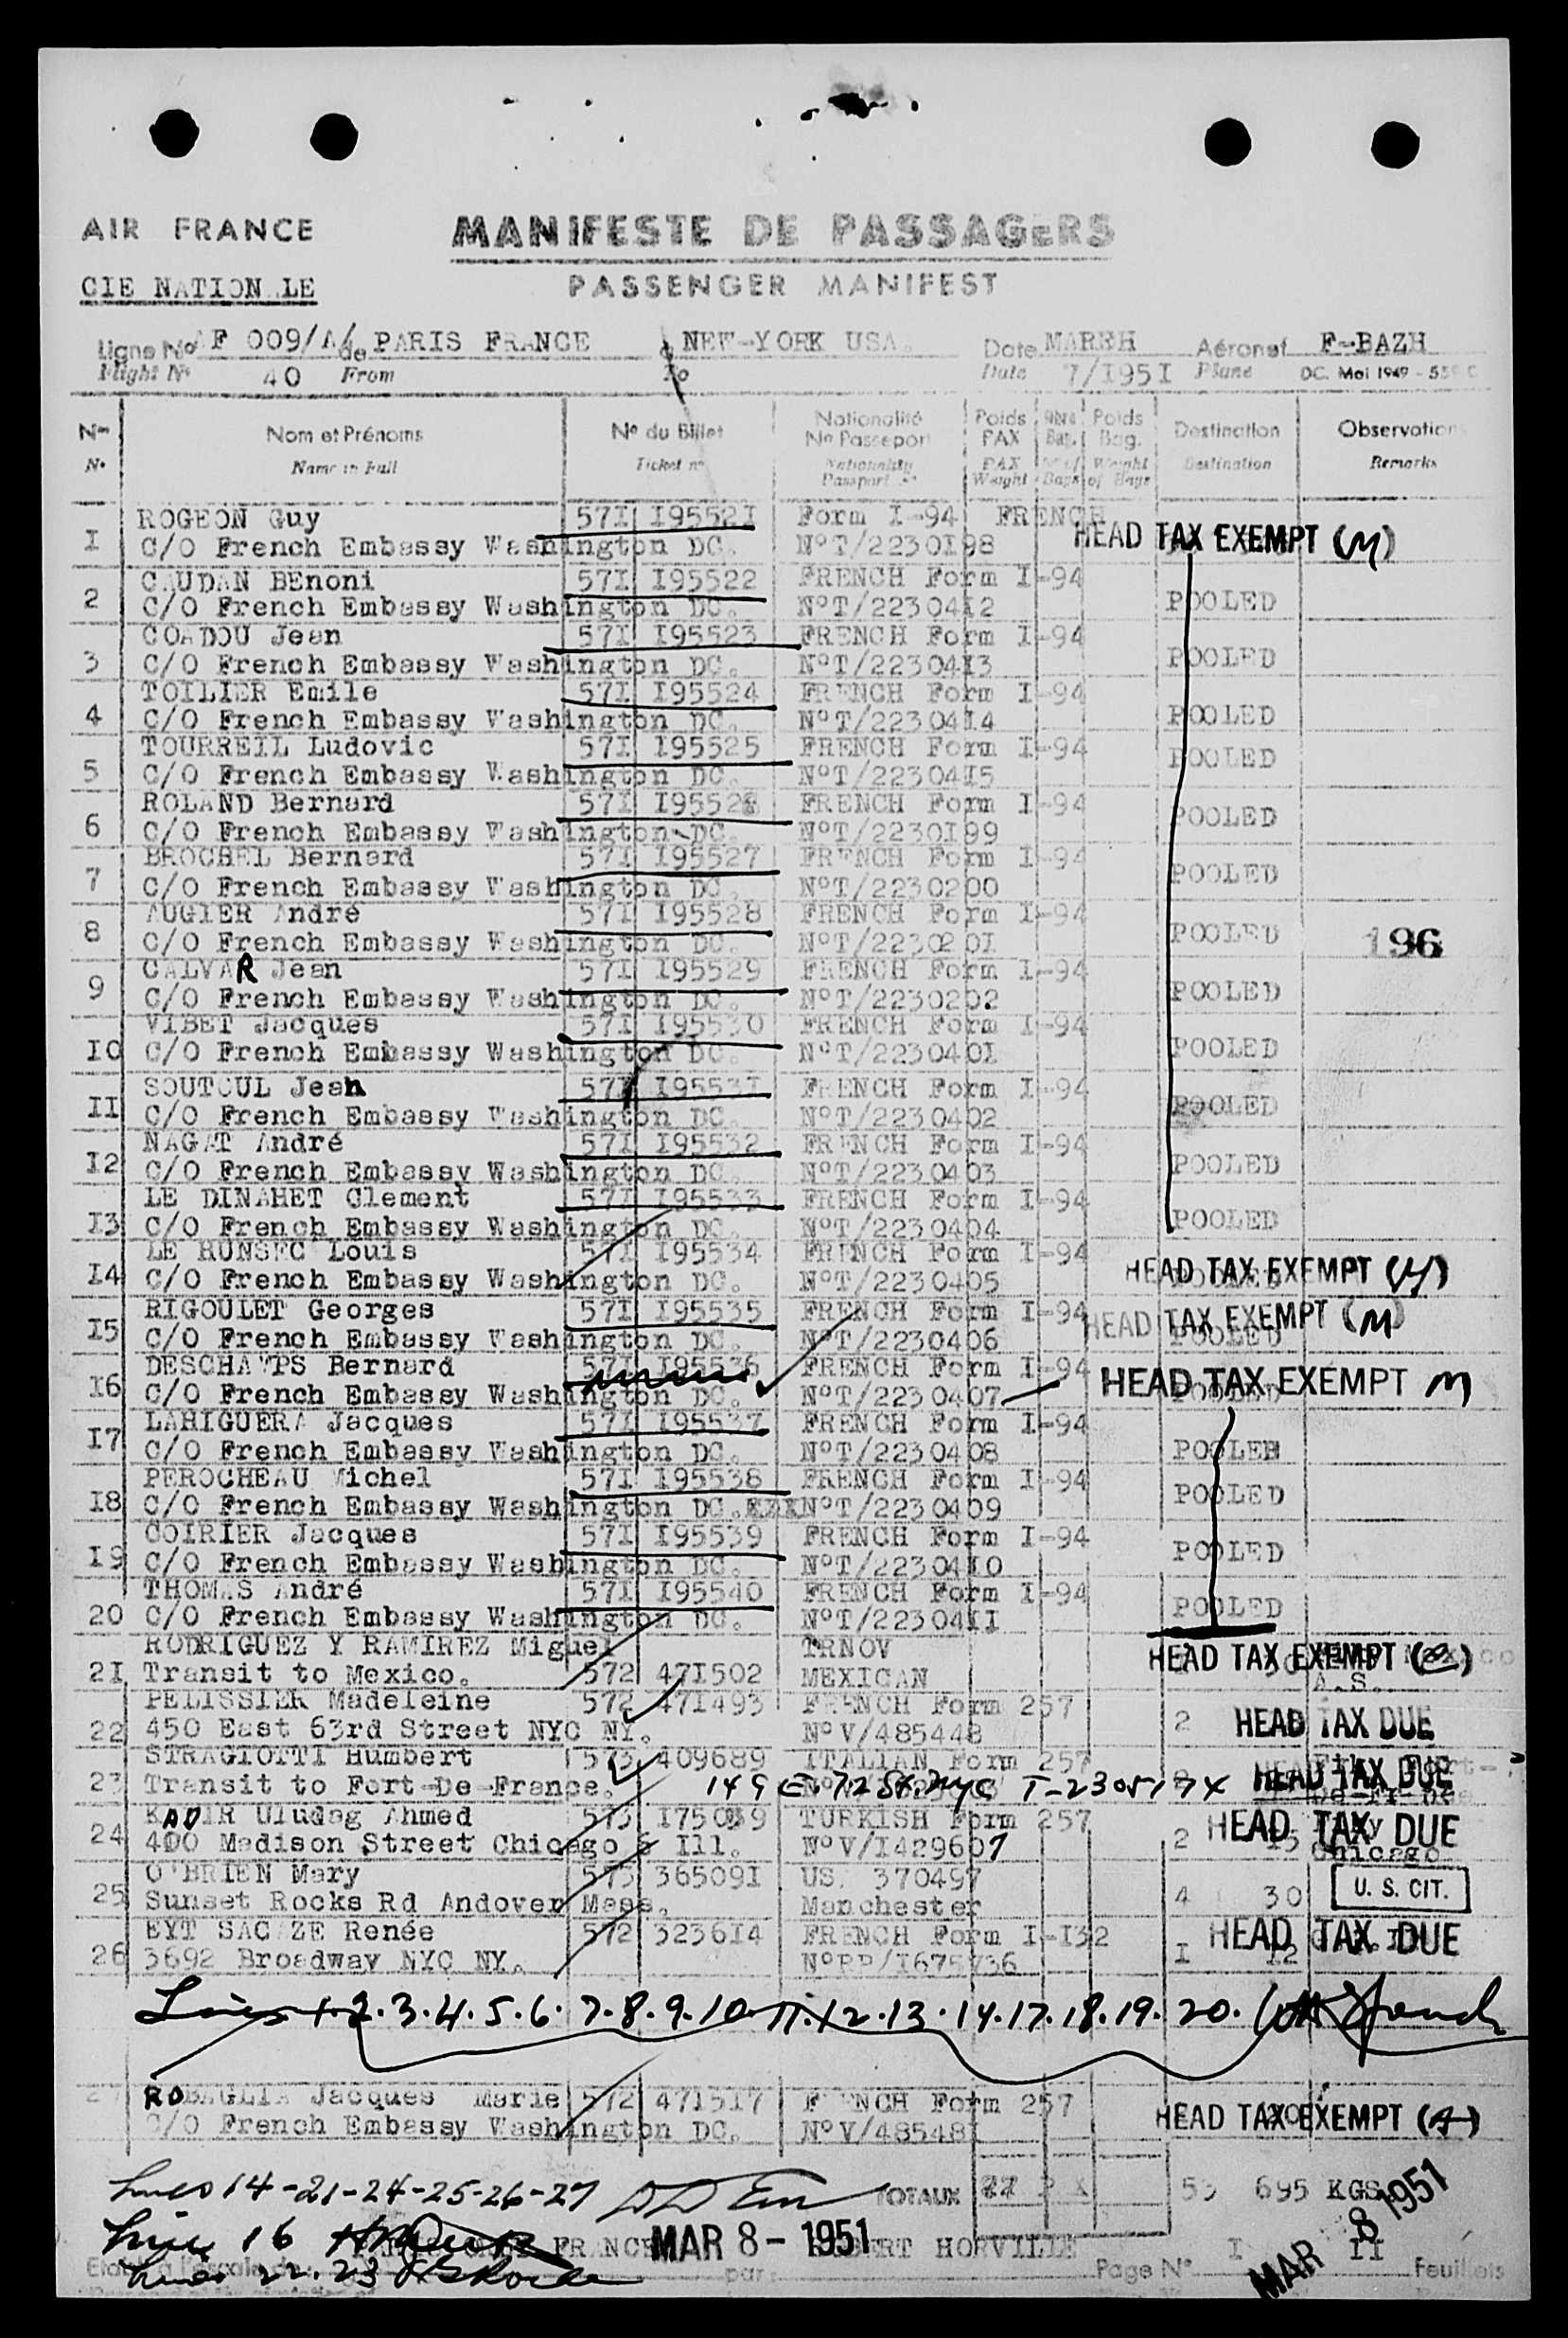 AIR FRANCE
MANIFESTE DE PASSAGERS
CIE NATION LE
PASSENGER MANIFEST
Ligne No AF 009/A/ de PARIS FRANCE à NEW-YORK USA. Date MARBH Aéronef F-BAZH
Flight No 40 From To Date 7/I95I Plane DC. Mai 1949 - 55
Nos Nom et Prénoms No du Billet Nationalité No Passeport Poids PAX Nbre Bag. Poids Bag. Destination Observations
No Name in Full Ticket no Nationality Passport no PAX Weight No of Bags Weight of Bags Destination Remarks
ROGEON Guy 57I I9552I Form I-94 FRENCH
I C/O French Embassy Washington DC. N°T/2230I98 HEAD TAX EXEMPT (M)
CAUDAN BEnoni 57I I95522 FRENCH Form I-94
2 C/O French Embassy Washington DC. N°T/22304I2 POOLED
COADOU Jean 57I I95523 FRENCH Form I-94
3 C/O French Embassy Washington DC. N°T/22304I3 POOLED
TOILIER Emile 57I I95524 FRENCH Form I-94
4 C/O French Embassy Washington DC. N°T/22304I4 POOLED
TOURREIL Ludovic 57I I95525 FRENCH Form I-94
5 C/O French Embassy Washington DC. N°T/22304I5 POOLED
ROLAND Bernard 57I FRENCH Form I-94
6 C/O French Embassy Washington DC. N°T/2230I99 POOLED
BROCHEL Bernard 57I I95527 FRENCH Form I-94
7 C/O French Embassy Washington DC. N°T/2230200 POOLED
AUGIER André 57I I95528 FRENCH Form I-94
8 C/O French Embassy Washington DC. N°T/223020I POOLED 196
CALVAR Jean 57I I95529 FRENCH Form I-94
9 C/O French Embassy Washington DC. N°T/2230202 POOLED
VIBET Jacques 57I I95530 FRENCH Form I-94
IO C/O French Embassy Washington DC. N°T/223040I POOLED
SOUTOUL Jean 57I I9553I FRENCH Form I-94
II C/O French Embassy Washington DC. N°T/2230402 POOLED
NAGAT André 57I I95532 FRENCH Form I-94
I2 C/O French Embassy Washington DC. N°T/2230403 POOLED
LE DINAHET Clement 57I I95533 FRENCH Form I-94
I3 C/O French Embassy Washington DC. N°T/2230404 POOLED
LE HUNSEC Louis 57I I95534 FRENCH Form I-94
I4 C/O French Embassy Washington DC. N°T/2230405 HEAD TAX EXEMPT (M)
RIGOULET Georges 57I I95535 FRENCH Form I-94
I5 C/O French Embassy Washington DC. N°T/2230406 POOLED HEAD TAX EXEMPT (M)
DESCHAMPS Bernard 57I I95536 FRENCH Form I-94
I6 C/O French Embassy Washington DC. N°T/2230407 HEAD TAX EXEMPT M
LAHIGUERA Jacques 57I I95537 FRENCH Form I-94
I7 C/O French Embassy Washington DC. N°T/2230408 POOLEH
PEROCHEAU Michel 57I I95538 FRENCH Form I-94
I8 C/O French Embassy Washington DC.XXXN°T/2230409 POOLED
COIRIER Jacques 57I I95539 FRENCH Form I-94
I9 C/O French Embassy Washington DC. N°T/22304IO POOLED
THOMAS André 57I I95540 FRENCH Form I-94
20 C/O French Embassy Washington DC. N°T/22304II POOLED
RODRIGUEZ Y RAMIREZ Miguel TRNOV
2I Transit to Mexico. 572 47I502 MEXICAN HEAD TAX EXEMPT A.S.
PELISSIER Madeleine 572 47I493 FRENCH Form 257
22 450 East 63rd Street NYC NY. N°V/485448 2 HEAD TAX DUE
STRAGIOTTI Humbert 573 409689 ITALIAN Form 257
23 Transit to Fort-De-France. 149 E. 72 St. NYC T-2305174 HEAD TAX DUE
KADIR Uludag Ahmed 573 I75039 TURKISH Form 257
24 400 Madison Street Chicago 6 Ill. N°V/I429607 2 I5 Chicago HEAD TAX DUE
O'BRIEN Mary 573 36509I US. 370497
25 Sunset Rocks Rd Andover Mass. Manchester 4 30 U. S. CIT.
EYT SACAZE Renée 572 3236I4 FRENCH Form I-I32
26 3692 Broadway NYC NY. N°RP/I675736 I I2 HEAD TAX DUE
Lines 1.2.3.4.5.6.7.8.9.10.11.12.13.14.17.18.19.20.
27 ROBAGLIA Jacques Marie 572 47I5I7 FRENCH Form 257
C/O French Embassy Washington DC. N°V/48548I HEAD TAX EXEMPT (A)
Lines 14-21-24-25-26-27 TOTAUX 27 53 695 KGS
Line 16 FRANCE MAR 8 - 1951 HORVILLE I II MAR 8 1951
Lines 22.23 par Page N° Feuillets